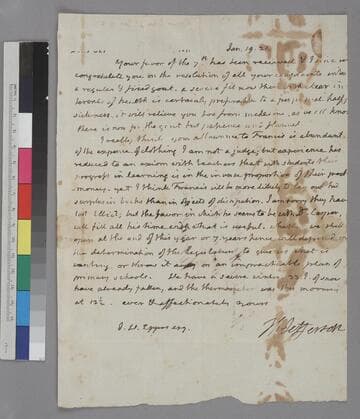 Jan. 19. 2
Your favor of the 7th has been received & I
congratulate you on the resolution of all your complaints into
a regular & fixed gout. a severe fit now & then with clear in
tervals of health is certainly preferable to a perpetual half
sickness. it will relieve you too from medicine, as we all know
there is now for the gout but patience and flannel.
I really think your allowance to Francis is abundant.
of the expence of clothing I am not a judge, but experience has
reduced to an axiom with teachers that with students their
progress in learning is in the inverse proportion of their pocket
money. yet I think Francis will be more likely to lay out his
surplus in books than in objects of dissipation. I am sorry they have
lost Elliot; but the favor in which he seems to be with Dr Cooper,
will fill all his time with that is useful. whether we shall
open at the end of this year or 7. years hence will depend on
the determination of the legislature to give us what is
wanting or throw it away on an impracticable plan of
primary schools. We have a severe winter. 22 I. of snow
have already fallen, and the thermometer was this morning
at 12½. ever & affectionately yours
Th Jefferson
J. W. Eppes esq.